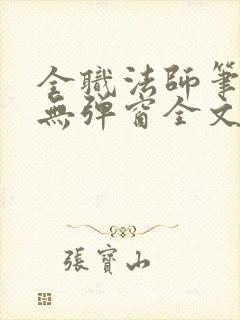 全職法師筆
無彈窗全文
張寶山